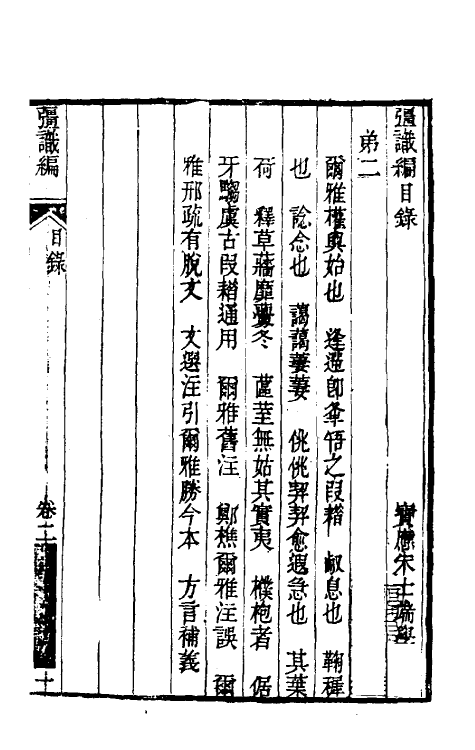 彊識編目錄
寶應朱士端學
弟二
爾雅權輿始也　逢遻即夆啎之叚耤　齂息也　鞠穉
也　諗念也　藹藹萋萋　佻佻契契愈遐急也　其葉
荷　釋草蘠蘼虋冬　蓲荎無姑其實夷　樸枹者　倨
牙騶虞古叚耤通用　爾雅舊注　鄭樵爾雅注誤　爾
雅邢疏有脫文　文選注引爾雅勝今本　方言補義
彊識編
目錄
卷二
十